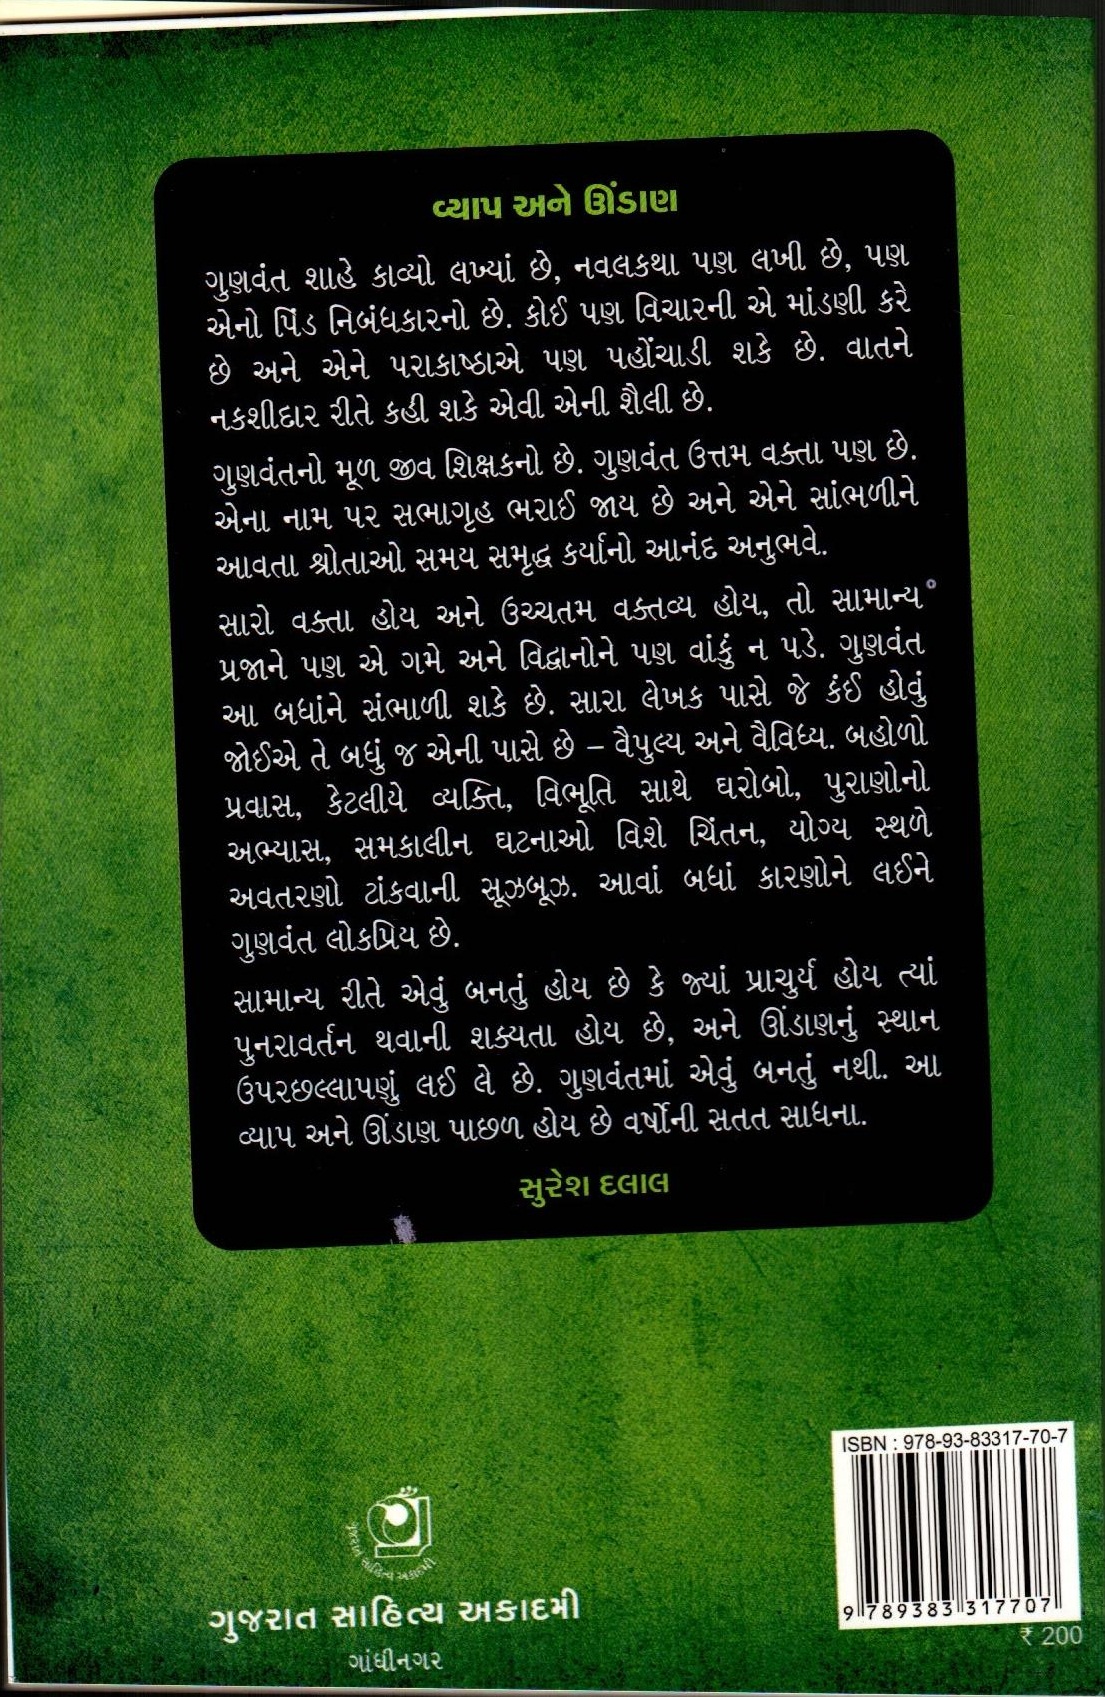 વ્યાપ અને ઊંડાણ
ગુણવંત શાહે કાવ્યો લખ્યાં છે, નવલકથા પણ લખી છે, પણ
એનો પિંડ નિબંધકારનો છે. કોઈ પણ વિચારની એ માંડણી કરે
છે અને એને પરાકાષ્ઠાએ પણ પહોંચાડી શકે છે. વાતને
નકશીદાર રીતે કહી શકે એવી એની શૈલી છે.
ગુણવંતનો મૂળ જીવ શિક્ષકનો છે. ગુણવંત ઉત્તમ વક્તા પણ છે.
એના નામ પર સભાગૃહ ભરાઈ જાય છે અને એને સાંભળીને
આવતા શ્રોતાઓ સમય સમૃદ્ધ કર્યાનો આનંદ અનુભવે.
સારો વક્તા હોય અને ઉચ્ચતમ વક્તવ્ય હોય, તો સામાન્ય
પ્રજાને પણ એ ગમે અને વિદ્વાનોને પણ વાંકું ન પડે. ગુણવંત
આ બધાંને સંભાળી શકે છે. સારા લેખક પાસે જે કંઈ હોવું
જોઈએ તે બધું જ એની પાસે છે – વૈપુલ્ય અને વૈવિધ્ય. બહોળો
પ્રવાસ, કેટલીયે વ્યક્તિ, વિભૂતિ સાથે ઘરોબો, પુરાણોનો
અભ્યાસ, સમકાલીન ઘટનાઓ વિશે ચિંતન, યોગ્ય સ્થળે
અવતરણો ટાંકવાની સૂઝબૂઝ. આવાં બધાં કારણોને લઈને
ગુણવંત લોકપ્રિય છે.
સામાન્ય રીતે એવું બનતું હોય છે કે જ્યાં પ્રાચુર્ય હોય ત્યાં
પુનરાવર્તન થવાની શક્યતા હોય છે, અને ઊંડાણનું સ્થાન
ઉપરછલ્લાપણું લઈ લે છે. ગુણવંતમાં એવું બનતું નથી. આ
વ્યાપ અને ઊંડાણ પાછળ હોય છે વર્ષોની સતત સાધના.
સુરેશ દલાલ
ISBN : 978-93-83317-70-7
9 789383 317707
₹ 200
ગુજરાત સાહિત્ય અકાદમી
ગુજરાત સાહિત્ય અકાદમી
ગાંધીનગર